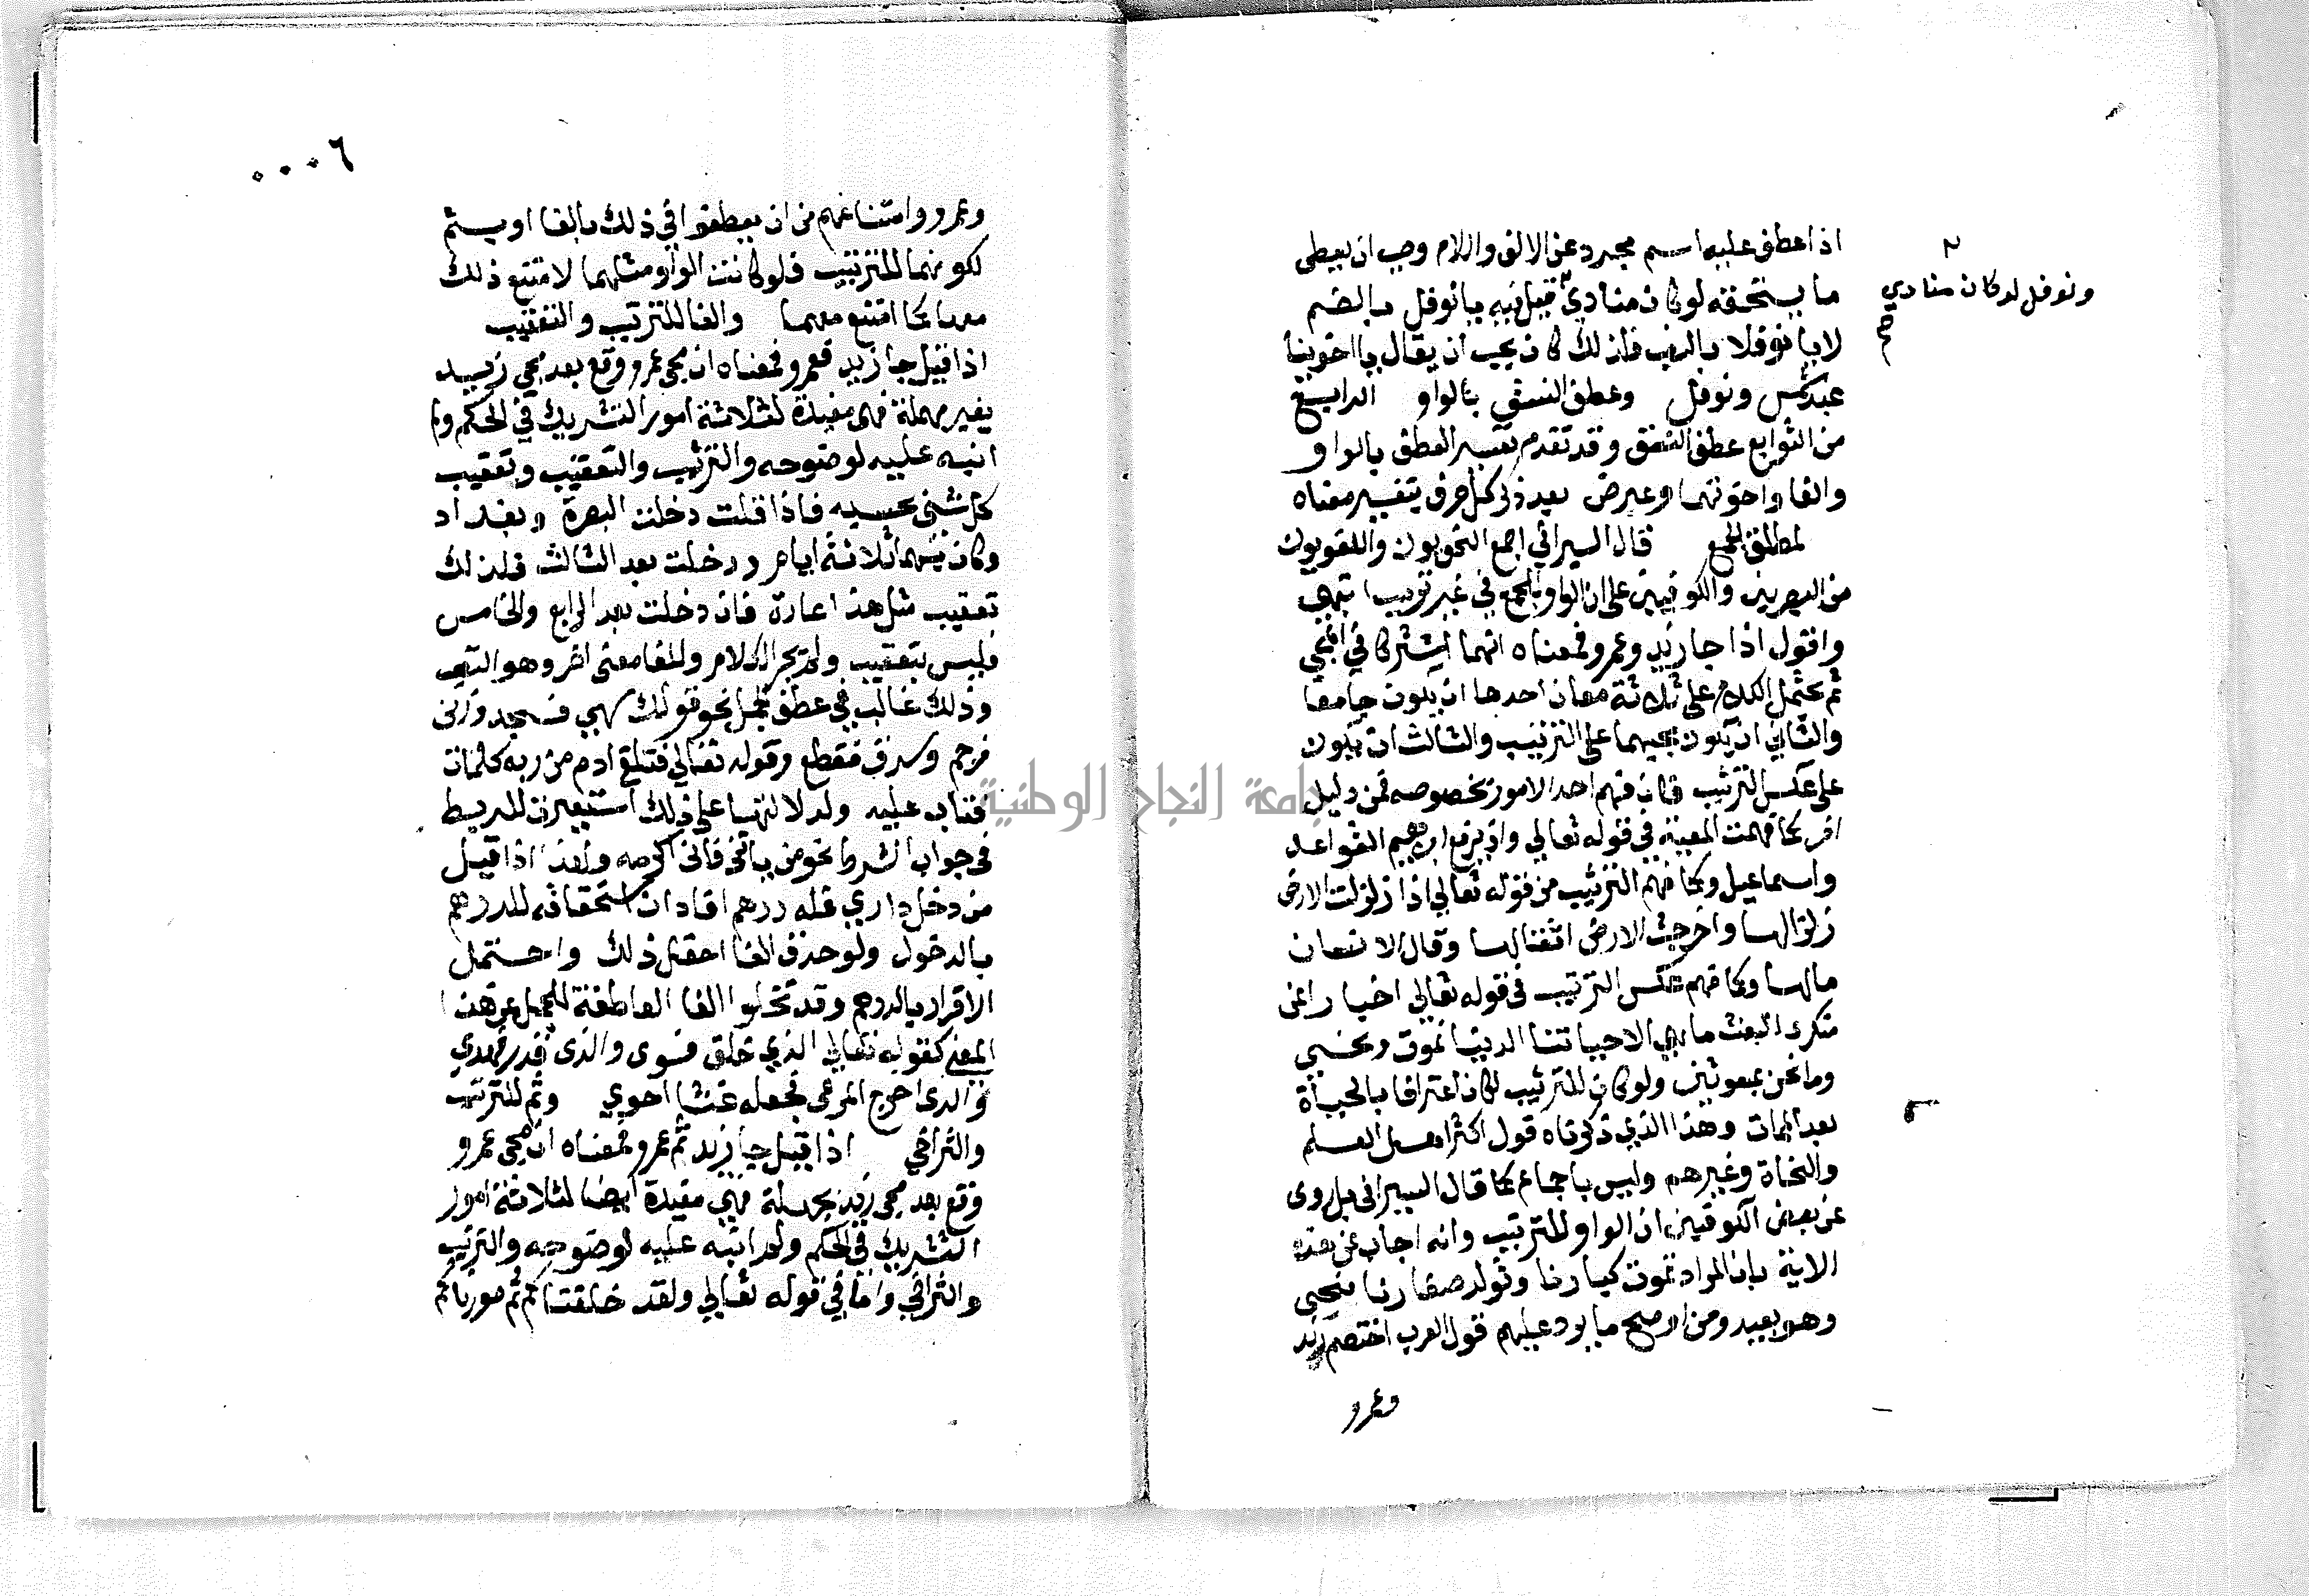 اذا عطف عليه اسم مجرد عن الالف واللام وجب ان يعطى
ما يستحقه لو كان منادي قيل فيه يا نوفل بالضم
ونوفل لو كان منادي
صح
لا يا نوفلا بالنصب فلذلك كان يجب ان يقال يا اخوينا
عبد شمس ونوفل وعطف النسق بالواو الرابع
من التوابع عطف النسق وقد تقدم تفسير العطف بالواو
والفا واخوتهما وعرض بعد ذكر كل حرف يتفسير معناه
لمطلق الجمع قال السيرافي اجمع النحويون واللغويون
من البصريين والكوفيين على ان الواو للجمع في غير ترتيب انتهى
واقول اذا جا زيد وعمرو فمعناه انهما اشتركا في المجي
ثم يحتمل الكلام على ثلاثة معان احدها ان يكون جا معا
والثاني ان يكون مجيهما على الترتيب والثالث ان يكون
على عكس الترتيب فان فهم احد الامور بخصوصه فمن دليل
اخر كما فهمت المعية في قوله تعالي واذ يرفع ابرهيم القواعد
واسماعيل وكما فهم الترتيب من قوله تعالي اذا زلزلت الارض
زلزالها واخرجت الارض اثقالها وقال الانسان
مالها وكما فهم عكس الترتيب في قوله تعالي اخبارا عن
منكري البعث ما هي الا حياتنا الدنيا نموت ونحيي
وما نحن بمبعوثين ولو كان للترتيب لكان اعترافا بالحياة
بعد الممات وهذا الذي ذكرناه قول اكثر اهل العلم
والنحاة وغيرهم وليس باجماع كما قال السيرافي بل روى
عن بعض الكوفيين ان الواو للترتيب وانه اجاب عن هذه
الاية بان المراد نموت كبارنا وتولد صغارنا فنحيي
وهو بعيد ومن اوضح ما يرد عليهم قول العرب اختصم زيد
وعمرو
٠٠٠٦
وعمرو وامتناعهم من ان يعطفوا في ذلك بالفا او بثم
لكونهما للترتيب فلو كانت الواو مثلهما لامتنع ذلك
معها كما امتنع معهما والفا للترتيب والتعقيب
اذا قيل جا زيد فعمرو فمعناه ان مجي عمرو وقع بعد مجي زيد
بغير مهملة فهي مفيدة لثلاثة امور التشريك في الحكم ولم
انبه عليه لوضوحه والترتيب والتعقيب وتعقيب
كل شئ بحسبه فاذا قلت دخلت البصرة وبغداد
وكان بينهما ثلاثة ايام ودخلت بعد الثالث فلذلك
تعقيب مثل هذا عادة فان دخلت بعد الرابع والخامس
فليس بتعقيب ولم يجز الكلام وللفا معنى اخر وهو التسبب
وذلك غالب في عطف الجمل نحو قولك سهي فسجد وزنى
فرجم وسرق فقطع وقوله تعالي فتلقى ادم من ربه كلمات
فتاب عليه ولدلالتها على ذلك استعيرت للربط
في جواب الشرط نحو من ياتي فاني اكرمه ولهذا اذا قيل
من دخل داري فله درهم افاد ان استحقاقه للدرهم
بالدخول ولو حذف الفا احتمل ذلك واحتمل
الاقرار بالدرهم وقد تخلوا الفا العاطفة للجمل عن هذا
المعنى كقوله تعالي الذي خلق فسوى والذي قدر فهدي
والذي اخرج المرعى فجعله غثا احوي وثم للترتيب
والتراخي اذا قيل جا زيد ثم عمرو فمعناه ان مجي عمرو
وقع بعد مجي زيد بمهلة فهي مفيدة ايضا لثلاثة امور
التشريك في الحكم ولم انبه عليه لوضوحه والترتيب
والتراخي واما في قوله تعالي ولقد خلقناكم ثم صورناكم
جامعة النجاح الوطنية